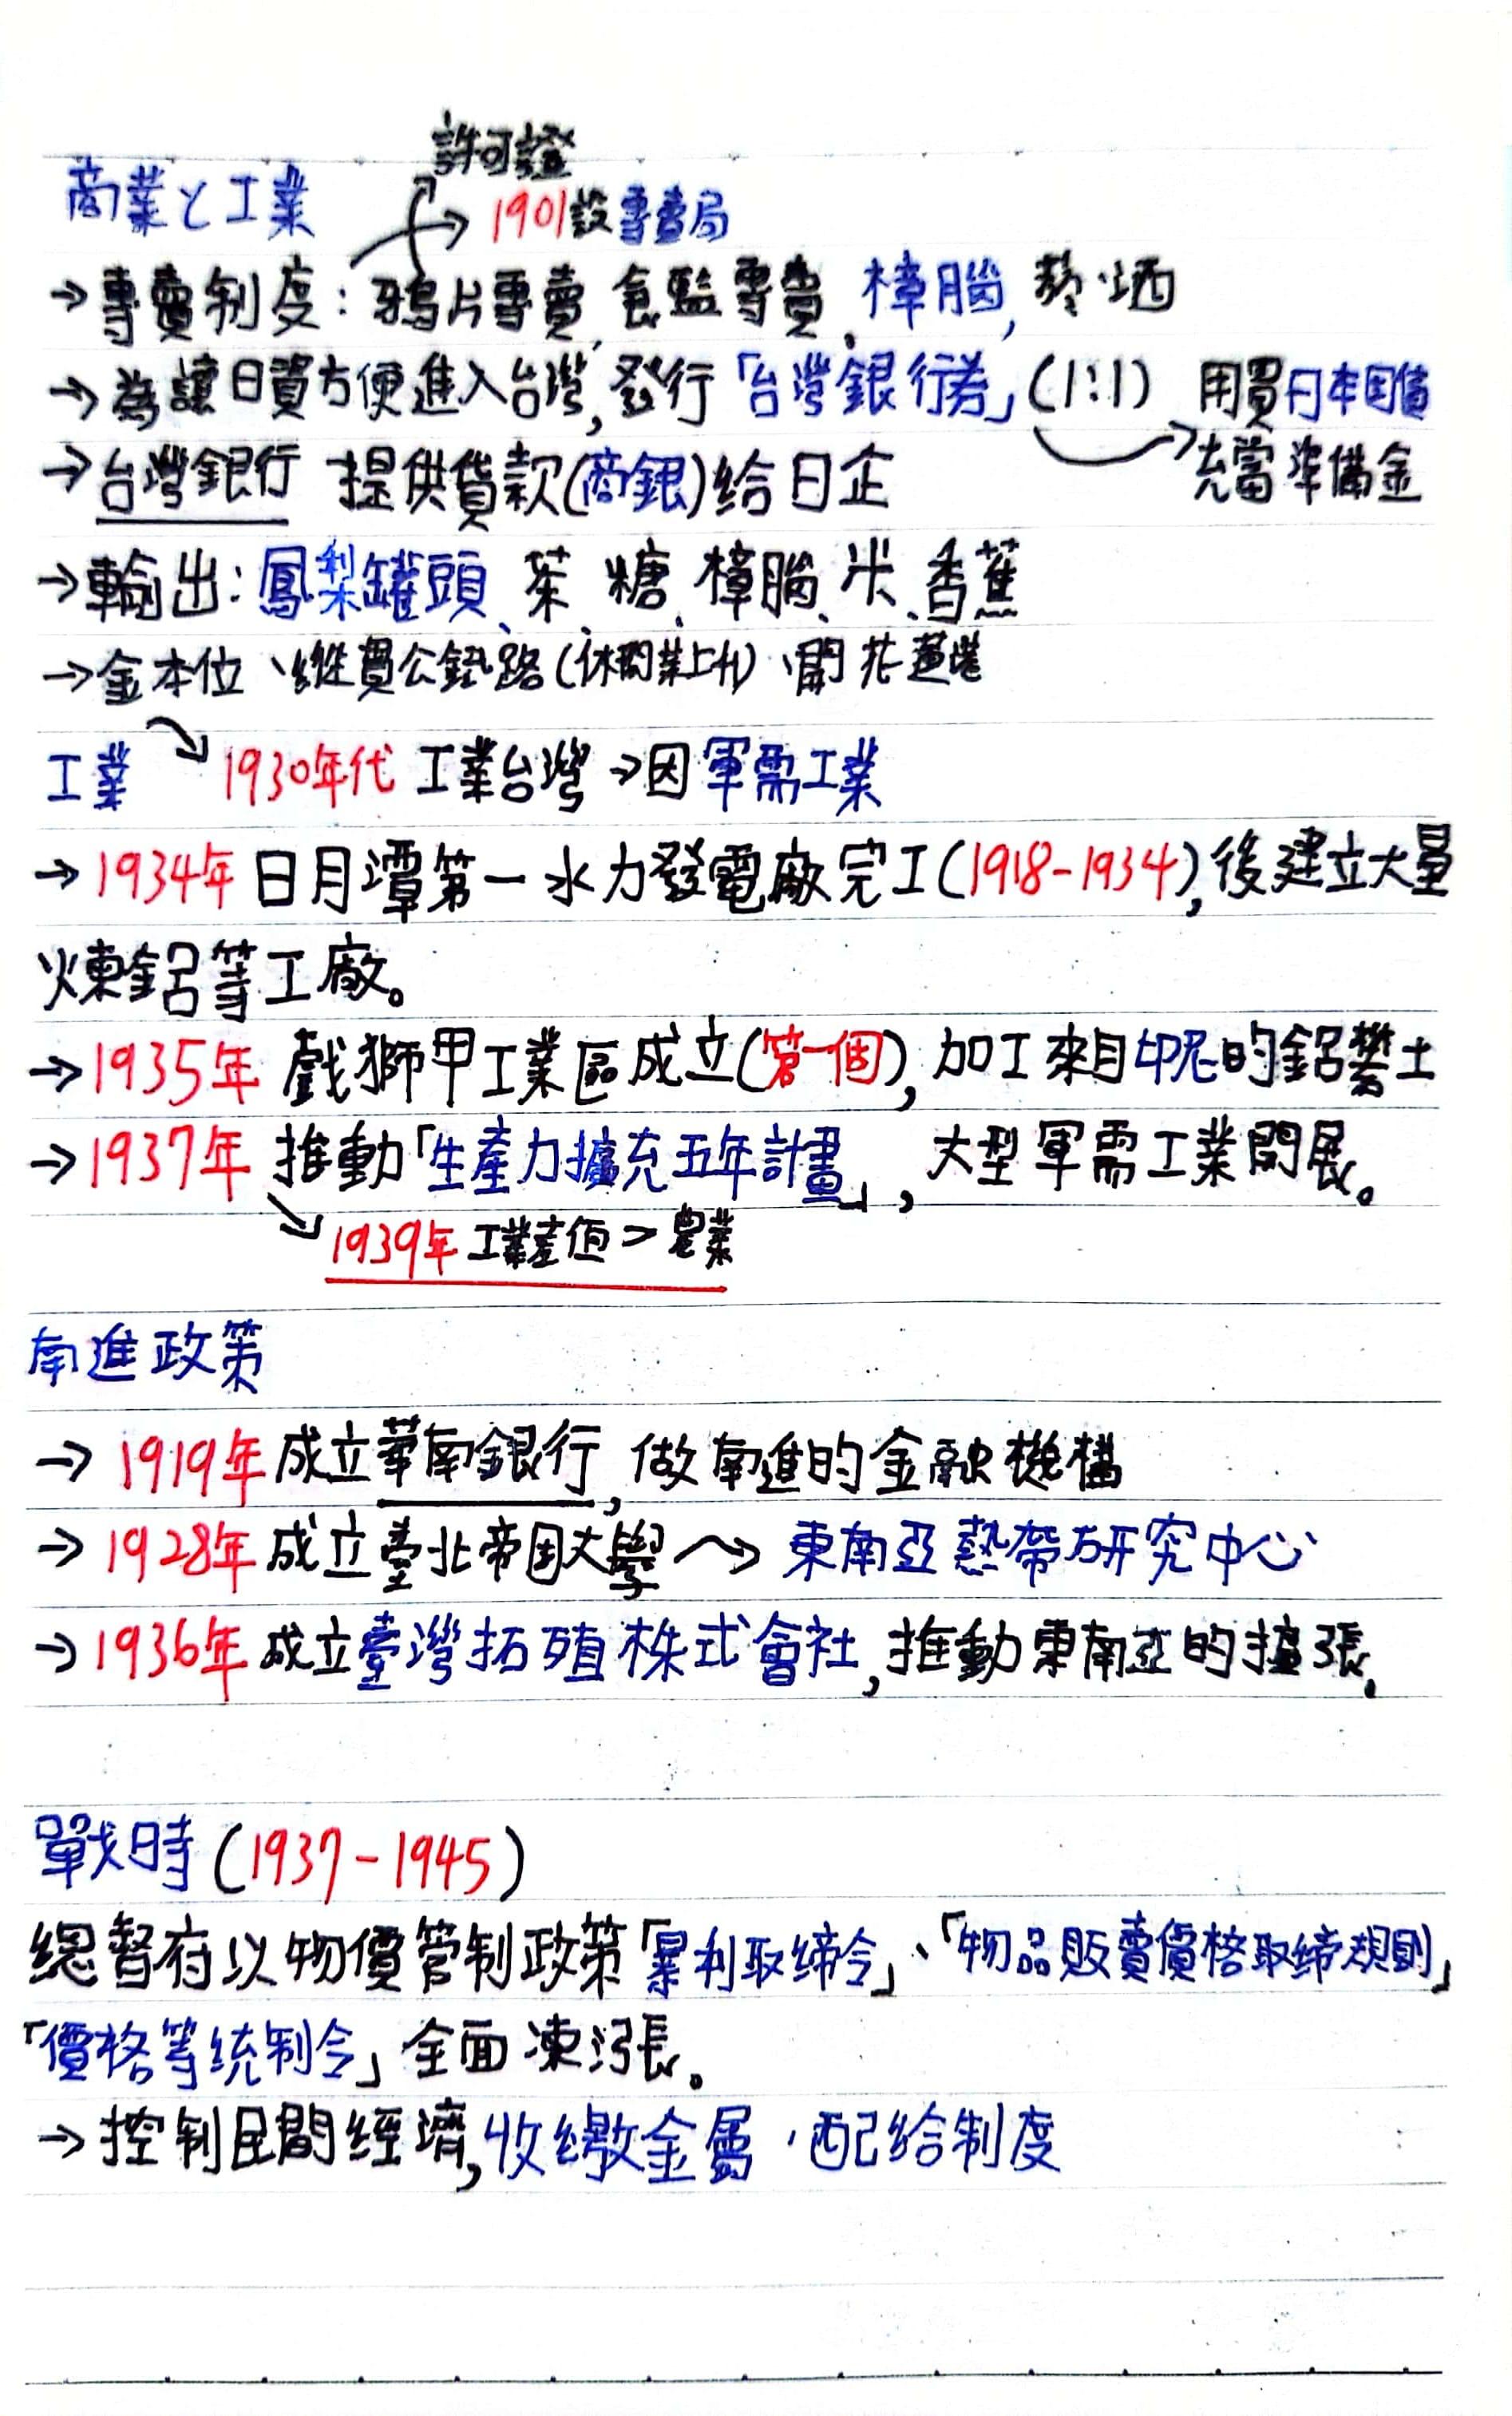 許可證
商業と工業
→ 1901設專賣局
→專賣制度：鴉片專賣、食鹽專賣、樟腦、菸、酒
→為讓日資方便進入台灣,發行「台灣銀行券」(1:1) 用買日本国債
→台灣銀行 提供貸款(商銀)給日企 充當準備金
→輸出：鳳梨罐頭、茶、糖、樟腦、米、香蕉
→金本位、縱貫公鐵路(休閒業上升)、開花蓮港
工業 1930年代 工業台灣→因軍需工業
→1934年 日月潭第一水力發電廠完工(1918-1934),後建立大量
煉鋁等工廠。
→1935年 戲獅甲工業區成立(第一個),加工來自印尼的鋁礬土
→1937年 推動「生產力擴充五年計畫」,大型軍需工業開展。
1939年 工業產值>農業
南進政策
→ 1919年 成立華南銀行,做南進的金融機構
→ 1928年 成立臺北帝国大學 → 東南亞熱帶研究中心
→ 1936年 成立臺灣拓殖株式會社,推動東南亞的擴張,
戰時(1937-1945)
總督府以物價管制政策「暴利取締令」、「物品販賣價格取締規則」
「價格等統制令」全面凍漲。
→控制民間經濟,收繳金屬、配給制度